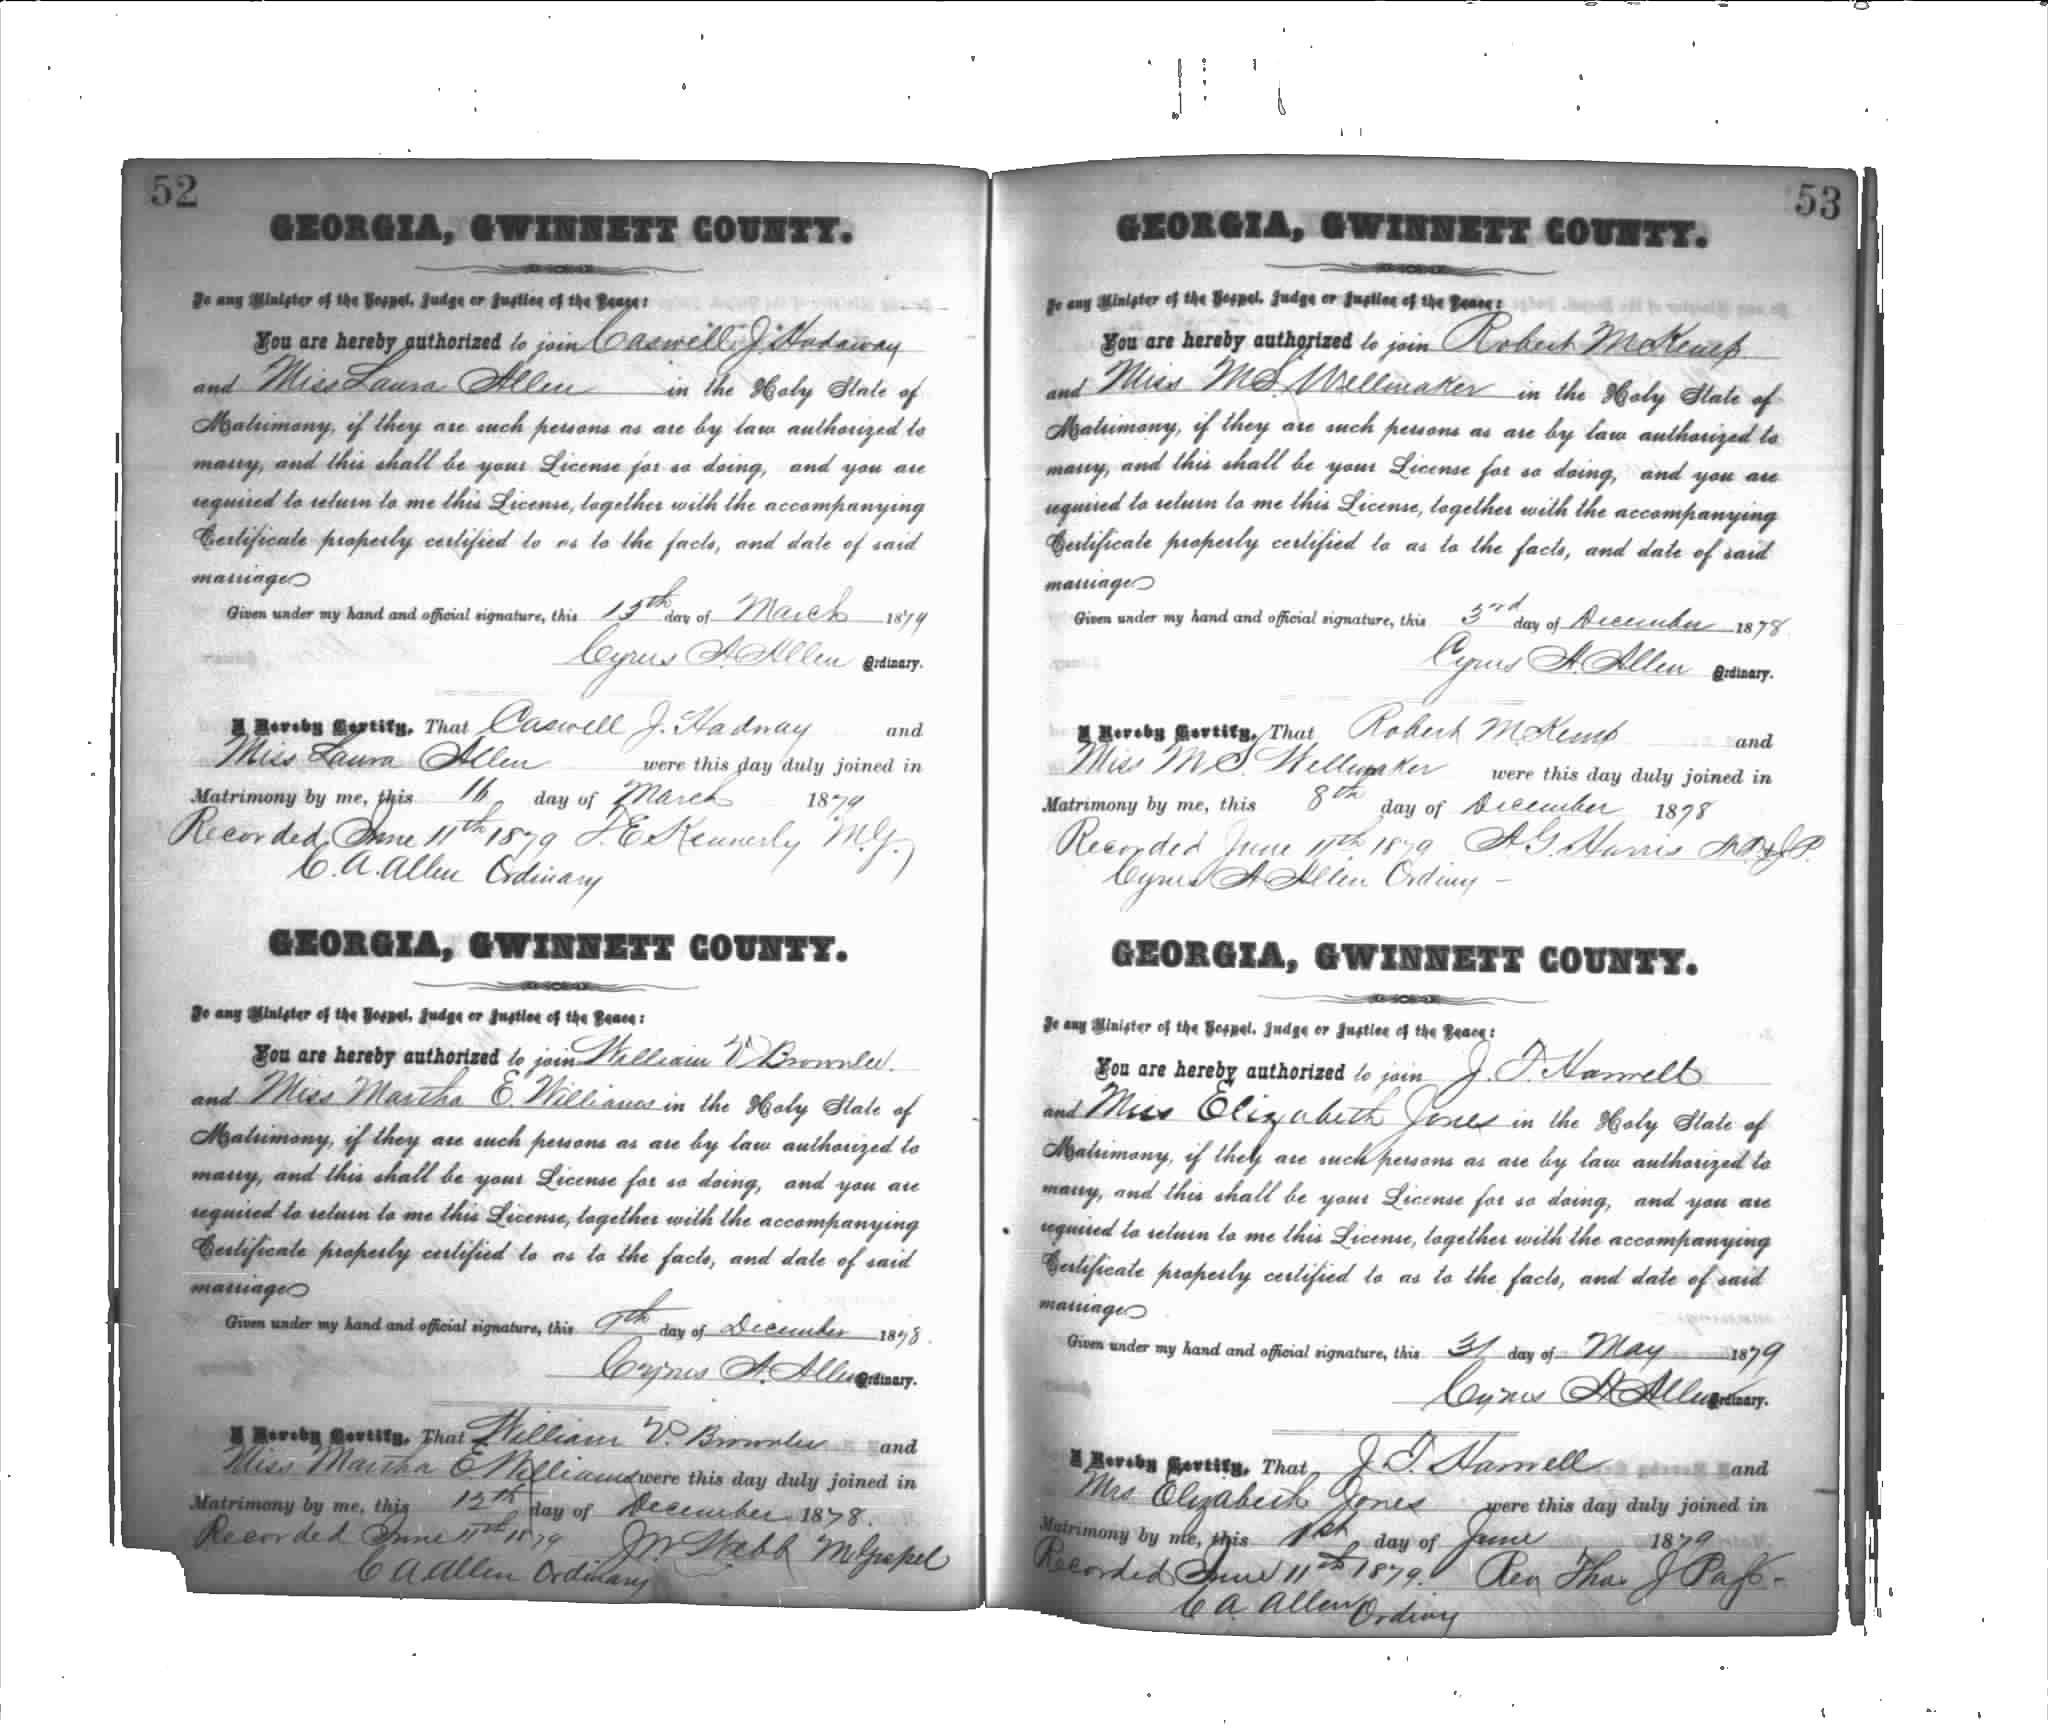 52
GEORGIA, GWINNETT COUNTY.
To any Minister of the Gospel, Judge or Justice of the Peace:
You are hereby authorized to join Caswell J. Hadaway
and Miss Laura Allen in the Holy State of
Matrimony, if they are such persons as are by law authorized to
marry, and this shall be your License for so doing, and you are
required to return to me this License, together with the accompanying
Certificate properly certified to as to the facts, and date of said
marriage
Given under my hand and official signature, this 15th day of March 1879
Cyrus A. Allen Ordinary.
I Hereby Certify, That Caswell J. Hadway and
Miss Laura Allen were this day duly joined in
Matrimony by me, this 16 day of March 1879
Recorded June 11th 1879 E Kennerly M.G.
C. A. Allen Ordinary
GEORGIA, GWINNETT COUNTY.
To any Minister of the Gospel, Judge or Justice of the Peace:
You are hereby authorized to join William V. Brownlee.
and Miss Martha E. Williams in the Holy State of
Matrimony, if they are such persons as are by law authorized to
marry, and this shall be your License for so doing, and you are
required to return to me this License, together with the accompanying
Certificate properly certified to as to the facts, and date of said
marriage
Given under my hand and official signature, this day of December 1878.
Cyrus A. Allen Ordinary.
I Hereby Certify, That William V. Brownlee and
Miss Martha E Williams were this day duly joined in
Matrimony by me, this 12th day of December 1878.
Recorded June 11th 1879 J W Webb M Gospel
C A Allen Ordinary
53
GEORGIA, GWINNETT COUNTY.
To any Minister of the Gospel, Judge or Justice of the Peace:
You are hereby authorized to join Robert McKemp
and Miss M S. Wellmaker in the Holy State of
Matrimony, if they are such persons as are by law authorized to
marry, and this shall be your License for so doing, and you are
required to return to me this License, together with the accompanying
Certificate properly certified to as to the facts, and date of said
marriage
Given under my hand and official signature, this 3rd day of December 1878.
Cyrus A. Allen Ordinary.
I Hereby Certify, That Robert McKemp and
Miss M S. Wellmaker were this day duly joined in
Matrimony by me, this 8th day of December 1878
Recorded June 11th 1879 A. G. Harris J.P.
Cyrus A Allen Ordiny -
GEORGIA, GWINNETT COUNTY.
To any Minister of the Gospel, Judge or Justice of the Peace:
You are hereby authorized to join J. T. Harwell
and Miss Elizabeth Jones in the Holy State of
Matrimony, if they are such persons as are by law authorized to
marry, and this shall be your License for so doing, and you are
required to return to me this License, together with the accompanying
Certificate properly certified to as to the facts, and date of said
marriage
Given under my hand and official signature, this 31 day of May 1879
Cyrus A Allen Ordinary.
I Hereby Certify, That J. T. Harwell and
Mrs Elizabeth Jones were this day duly joined in
Matrimony by me, this 1st day of June 1879
Recorded June 11th 1879. Rev Thos J
C A. Allen Ordiny